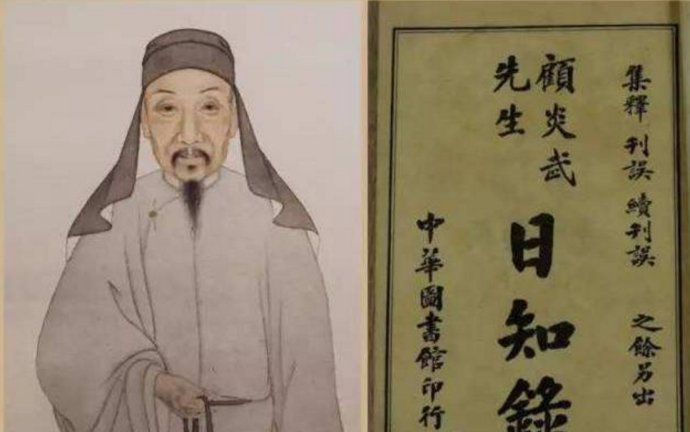 集釋 刊誤 續刊誤 之餘另出
顧炎武
先生
日知錄
中華圖書館印行